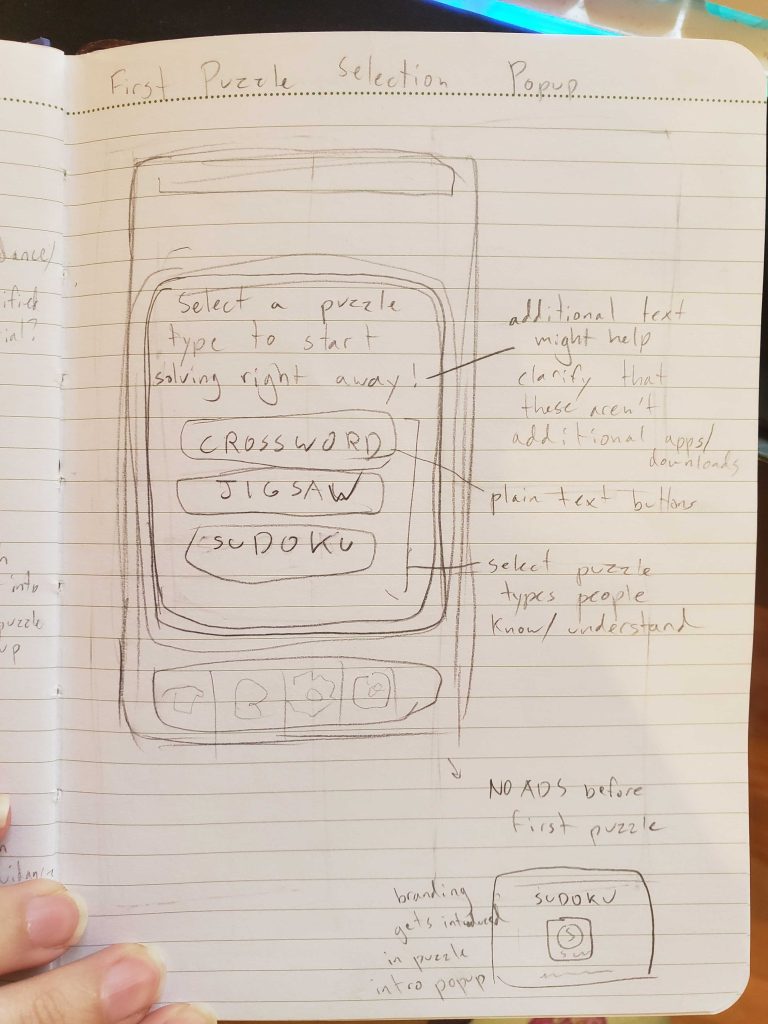 First Puzzle Selection Popup
Select a puzzle
type to start
solving right away!
additional text
might help
clarify that
these aren't
additional apps/
downloads
CROSSWORD
JIGSAW
SUDOKU
plain text buttons
select puzzle
types people
know/understand
NO ADS before
first puzzle
branding
gets introduced
in puzzle
intro popup
SUDOKU
S
into
puzzle